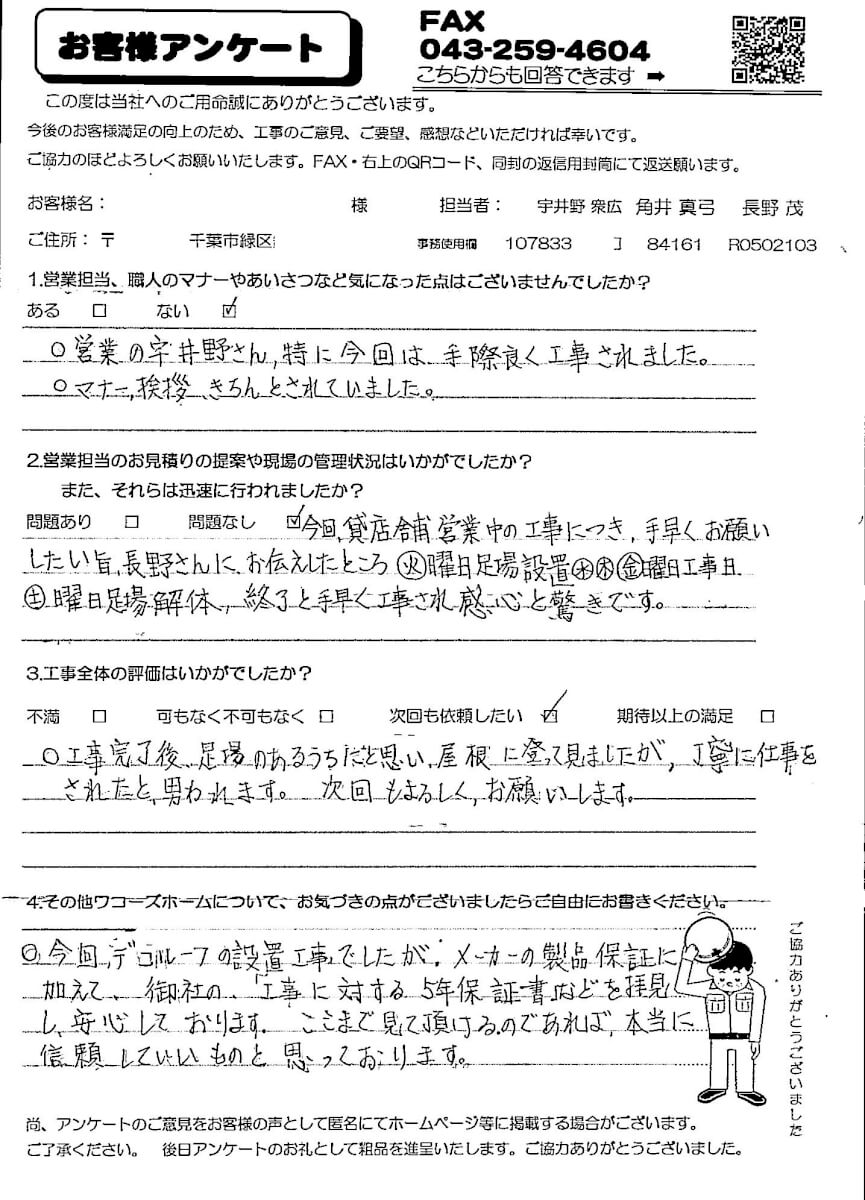 お客様アンケート
FAX
043-259-4604
こちらからも回答できます ➡
この度は当社へのご用命誠にありがとうございます。
今後のお客様満足の向上のため、工事のご意見、ご要望、感想などいただければ幸いです。
ご協力のほどよろしくお願いいたします。FAX・右上のQRコード、同封の返信用封筒にて返送願います。
お客様名： 様 担当者： 宇井野 衆広 角井 真弓 長野 茂
ご住所：〒 千葉市緑区 事務使用欄 107833 84161 R0502103
1.営業担当、職人のマナーやあいさつなど気になった点はございませんでしたか？
ある □ ない ☑
○営業の宇井野さん,特に今回は、手際良く工事されました。
○マナー,挨拶、きちんとされていました。
2.営業担当のお見積りの提案や現場の管理状況はいかがでしたか？
また、それらは迅速に行われましたか？
問題あり □ 問題なし ☑ 今回,貸店舗営業中の工事につき,手早くお願い
したい旨,長野さんに、お伝えしたところ㊋曜日足場設置㊌㊍㊎曜日工事日
㊏曜日足場解体、終了と手早く工事され感心と驚きです。
3.工事全体の評価はいかがでしたか？
不満 □ 可もなく不可もなく □ 次回も依頼したい ☑ 期待以上の満足 □
○工事完了後、足場のあるうちだと思い,屋根に登って見ましたが,丁寧に仕事を
されたと、思われます。 次回もよろしく,お願いします。
4.その他ワコーズホームについて、お気づきの点がございましたらご自由にお書きください。
◎今回,デコルーフの設置工事でしたが、メーカーの製品保証に
加えて、御社の、「工事に対する5年保証書」などを拝見
し、安心しております. ここまで見て頂けるのであれば,本当に
信頼していいものと思っております。
ご協力ありがとうございました
尚、アンケートのご意見をお客様の声として匿名にてホームページ等に掲載する場合がございます。
ご了承ください。 後日アンケートのお礼として粗品を進呈いたします。ご協力ありがとうございました。